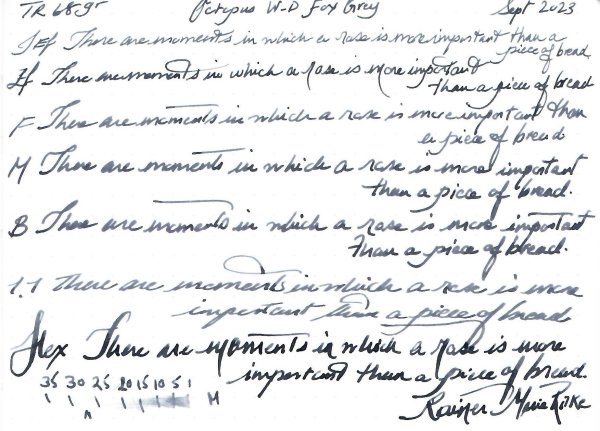 TR 68gr Octopus W-D Fox Grey Sept 2023
JEf There are moments in which a rose is more important than a
piece of bread
Ef There are moments in which a rose is more important
than a piece of bread
F There are moments in which a rose is more important than
a piece of bread
M There are moments in which a rose is more important
than a piece of bread.
B There are moments in which a rose is more important
than a piece of bread.
1.1 There are moments in which a rose is more
important than a piece of bread
Flex There are moments in which a rose is more
important than a piece of bread.
35 30 25 20 15 10 5 1
M
Rainer Maria Rilke